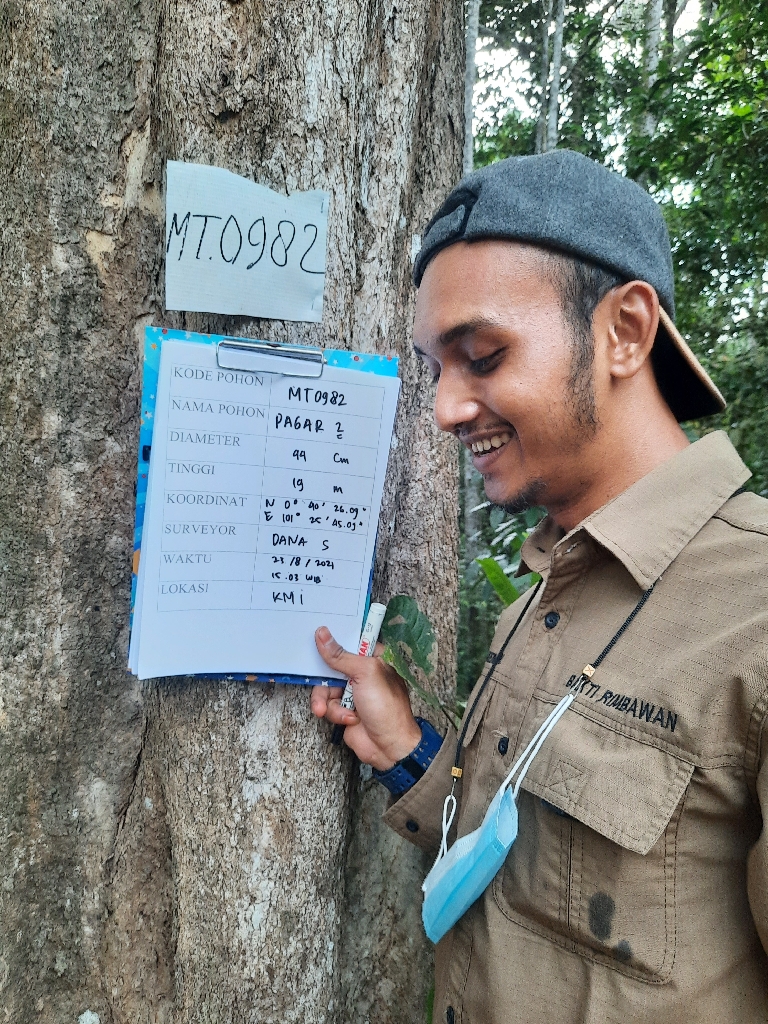 MT.0982
KODE POHON MT0982
NAMA POHON PAGAR 2
DIAMETER 99 cm
TINGGI 19 m
KOORDINAT N 0° 40' 26.09"
E 101° 25' 45.09"
SURVEYOR DANA S
WAKTU 23/8/2021
15.03 WIB
LOKASI KMi
BAKTI RIMBAWAN